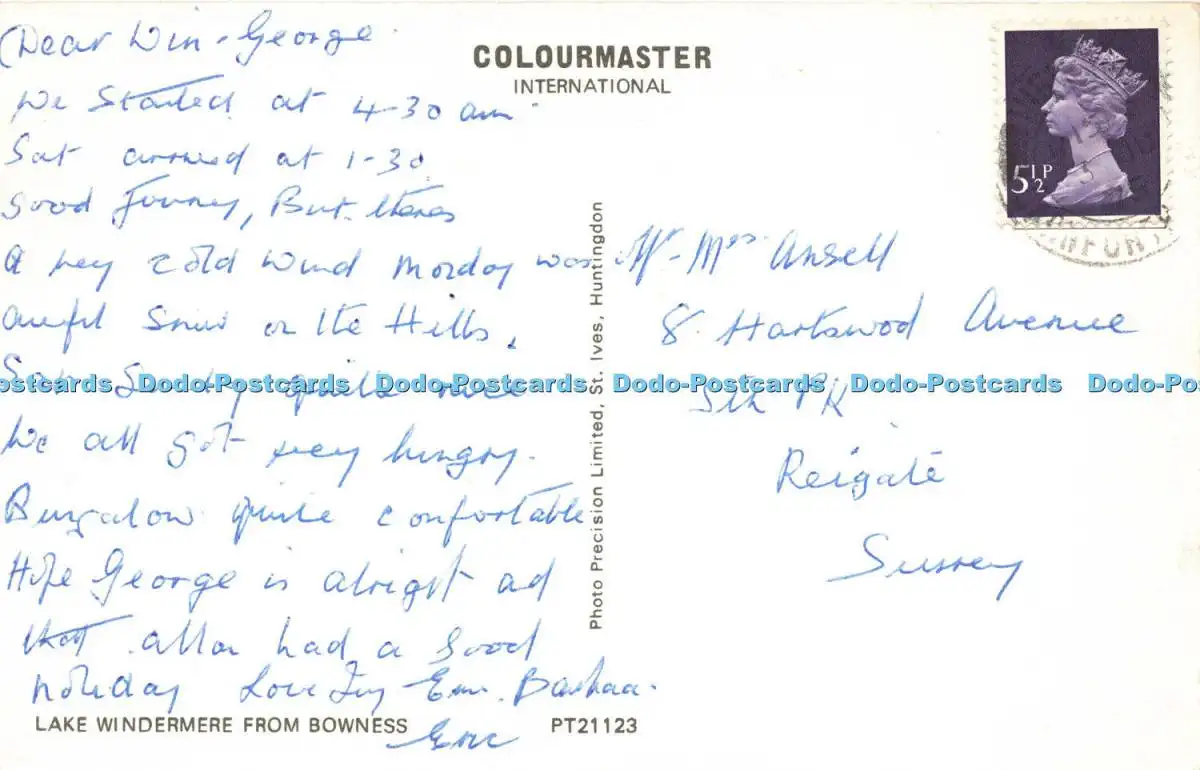 Dear Win - George
COLOURMASTER
INTERNATIONAL
We Started at 4-30 am
Sat arrived at 1-30
Good Journey, But theres
a very cold wind Monday was
awful Snow on the Hills.
Sat Sunday quite nice
We all got very hungry.
Bungalow quite comfortable
Hope George is alright ad
that allan had a Good
holiday Love Ivy - Em. Barbara.
Eric
5½P
Mr - Mrs Ansell
8. Hartswood Avenue
Sth PK
Reigate
Surrey
Photo Precision Limited, St. Ives, Huntingdon
Dodo-Postcards Dodo-Postcards Dodo-Postcards Dodo-Postcards Dodo-Postcards
LAKE WINDERMERE FROM BOWNESS PT21123